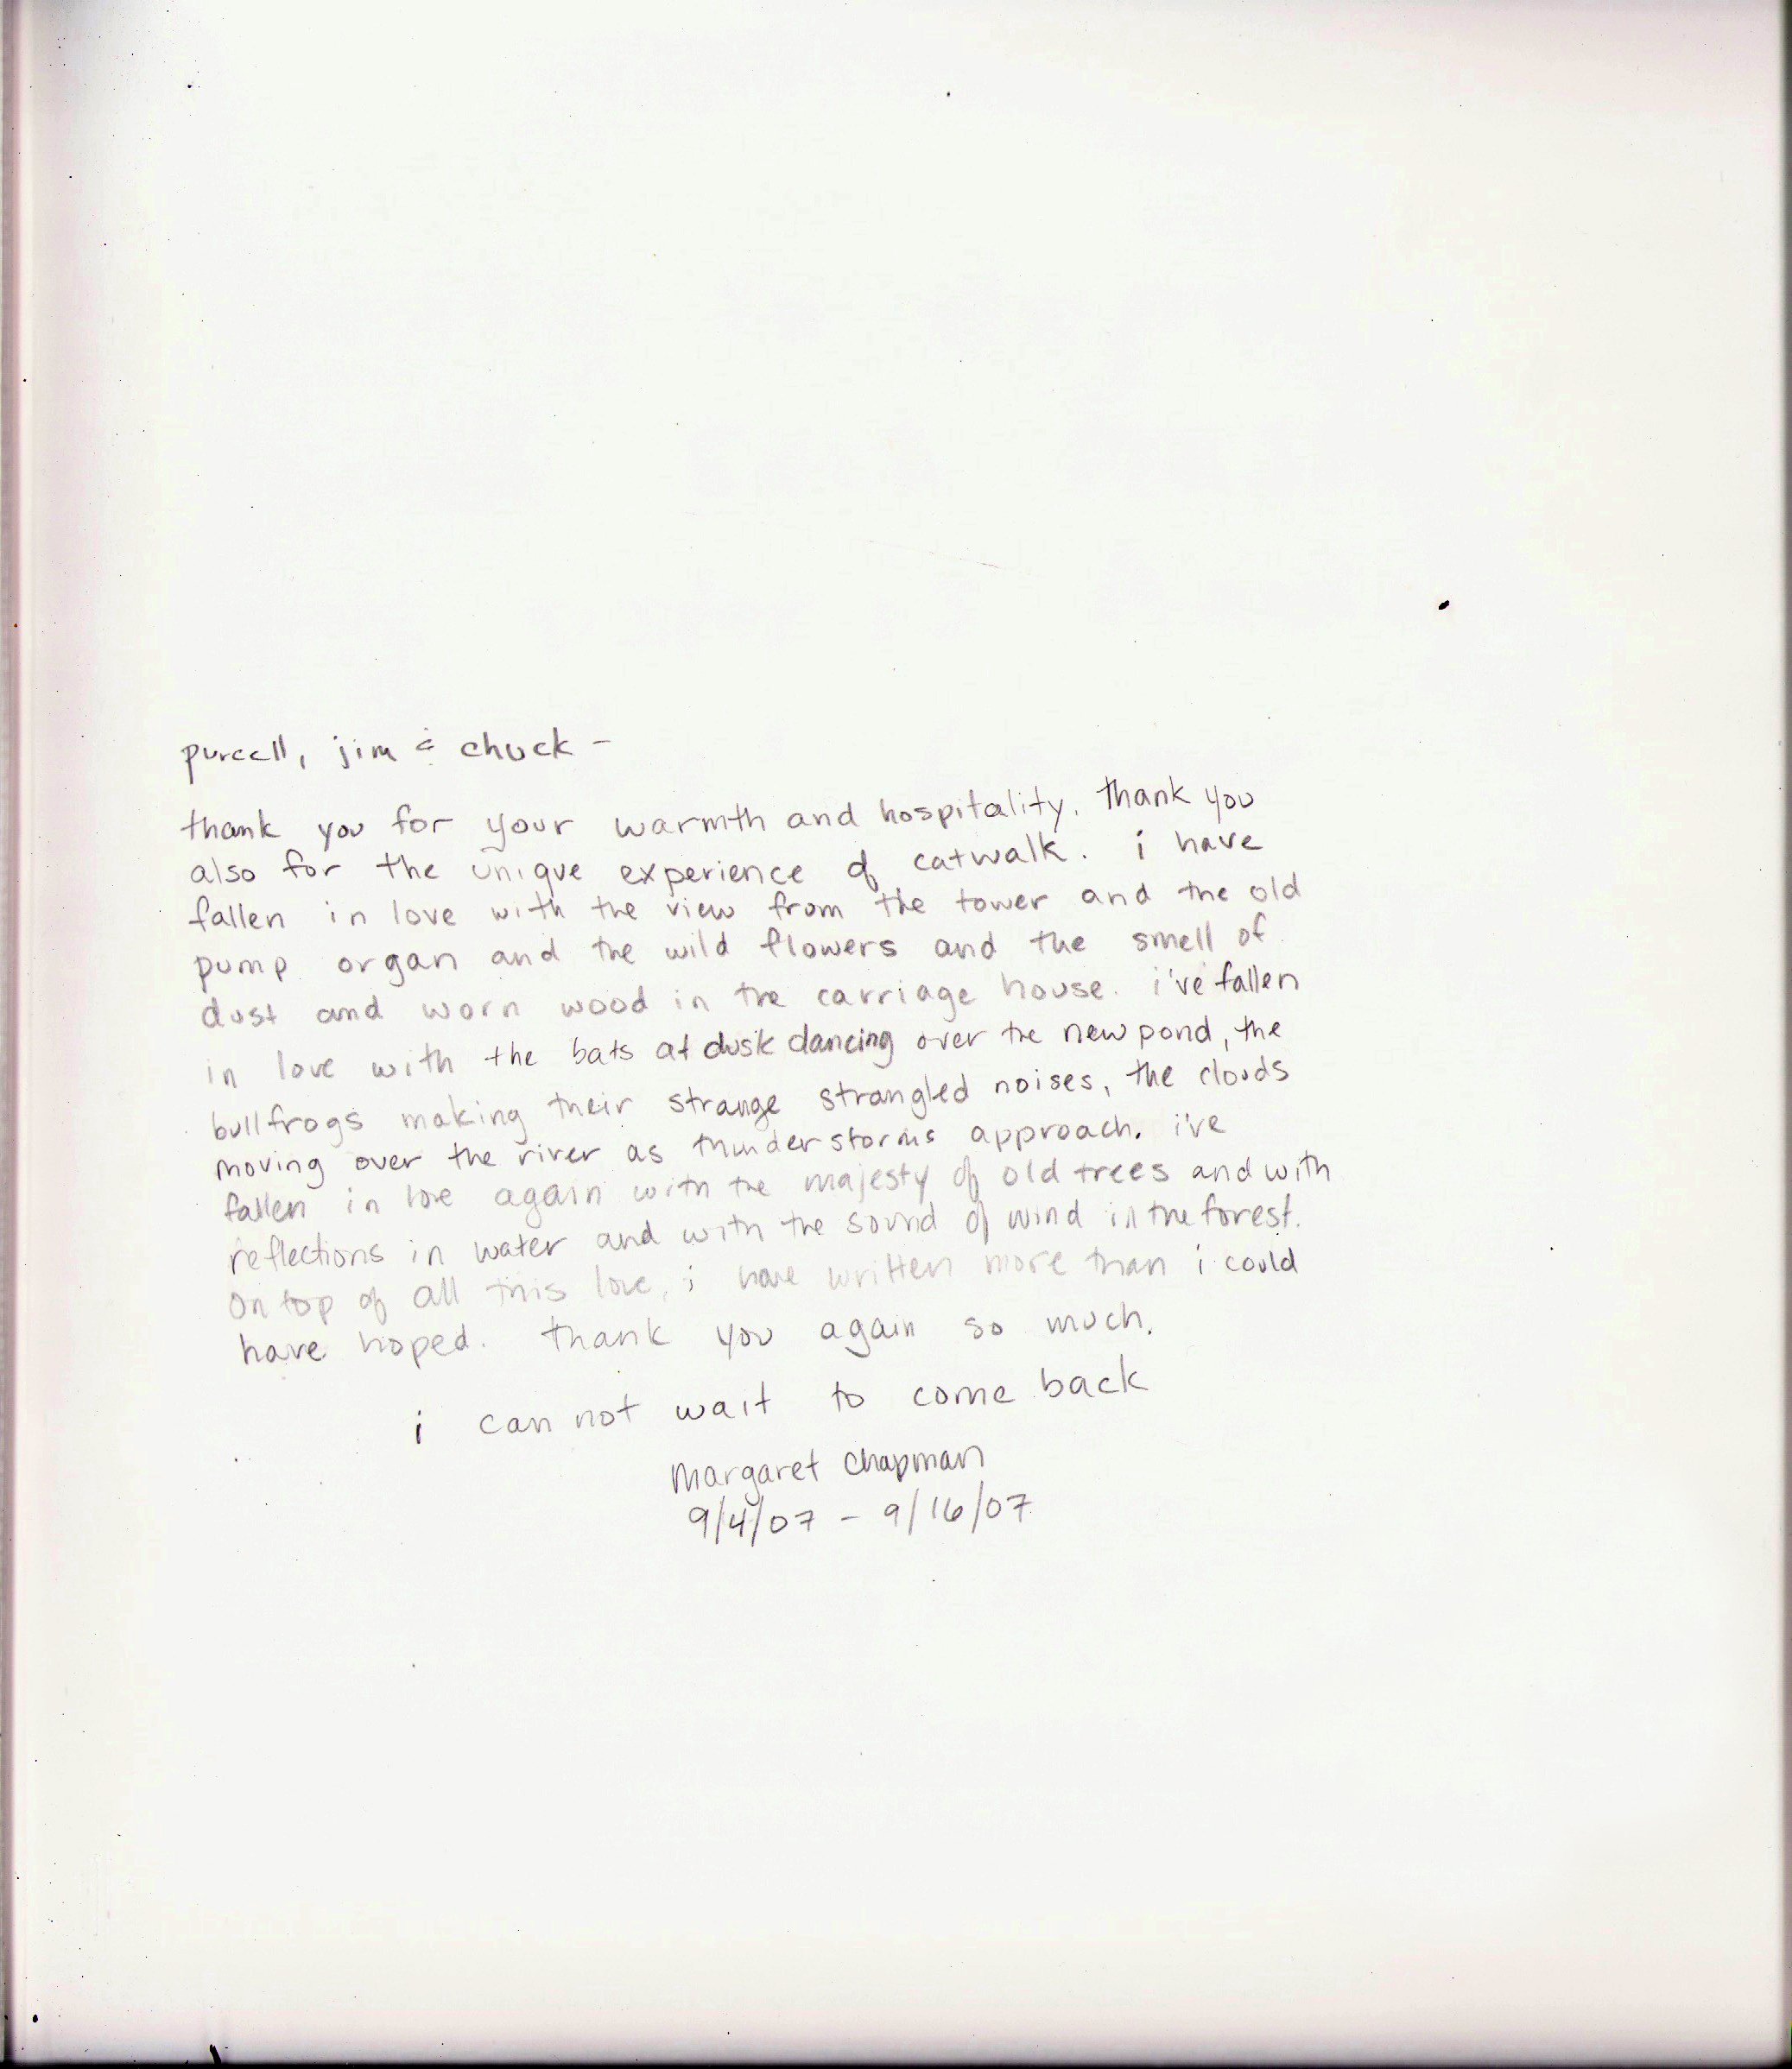 purcell, jim & chuck -
thank you for your warmth and hospitality. thank you
also for the unique experience of catwalk. i have
fallen in love with the view from the tower and the old
pump organ and the wild flowers and the smell of
dust and worn wood in the carriage house. i've fallen
in love with the bats at dusk dancing over the new pond, the
bullfrogs making their strange strangled noises, the clouds
moving over the river as thunderstorms approach. i've
fallen in love again with the majesty of old trees and with
reflections in water and with the sound of wind in the forest.
on top of all this love, i have written more than i could
have hoped. thank you again so much.
i can not wait to come back
Margaret Chapman
9/4/07 - 9/16/07